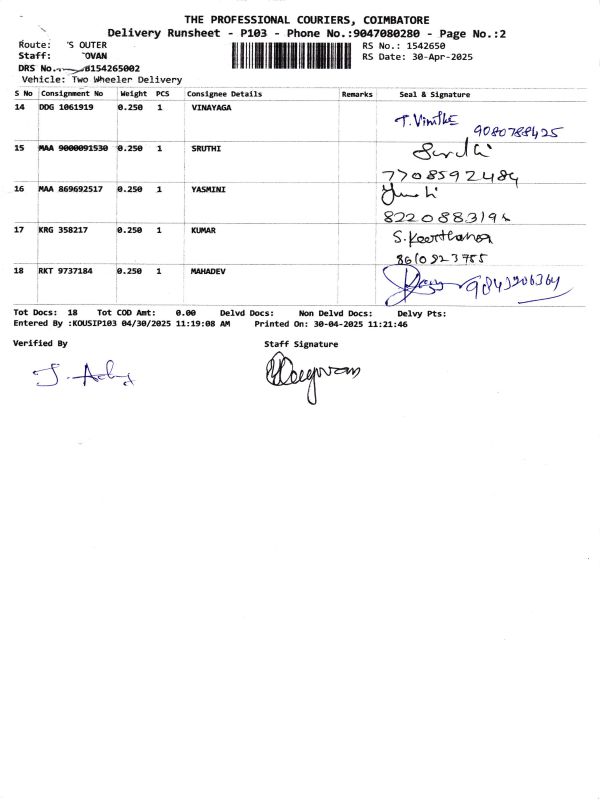 THE PROFESSIONAL COURIERS, COIMBATORE
Delivery Runsheet - P103 - Phone No.:9047080280 - Page No.:2
Route: 'S OUTER RS No.: 1542650
Staff: OVAN RS Date: 30-Apr-2025
DRS No. 8154265002
Vehicle: Two Wheeler Delivery
S No Consignment No Weight PCS Consignee Details Remarks Seal & Signature
14 DDG 1061919 0.250 1 VINAYAGA
9080788425
15 MAA 9000091530 0.250 1 SRUTHI
7708592484
16 MAA 869692517 0.250 1 YASMINI
17 KRG 358217 0.250 1 KUMAR S.Keerthana
8610823755
18 RKT 9737184 0.250 1 MAHADEV
Tot Docs: 18 Tot COD Amt: 0.00 Delvd Docs: Non Delvd Docs: Delvy Pts:
Entered By :KOUSIP103 04/30/2025 11:19:08 AM Printed On: 30-04-2025 11:21:46
Verified By Staff Signature